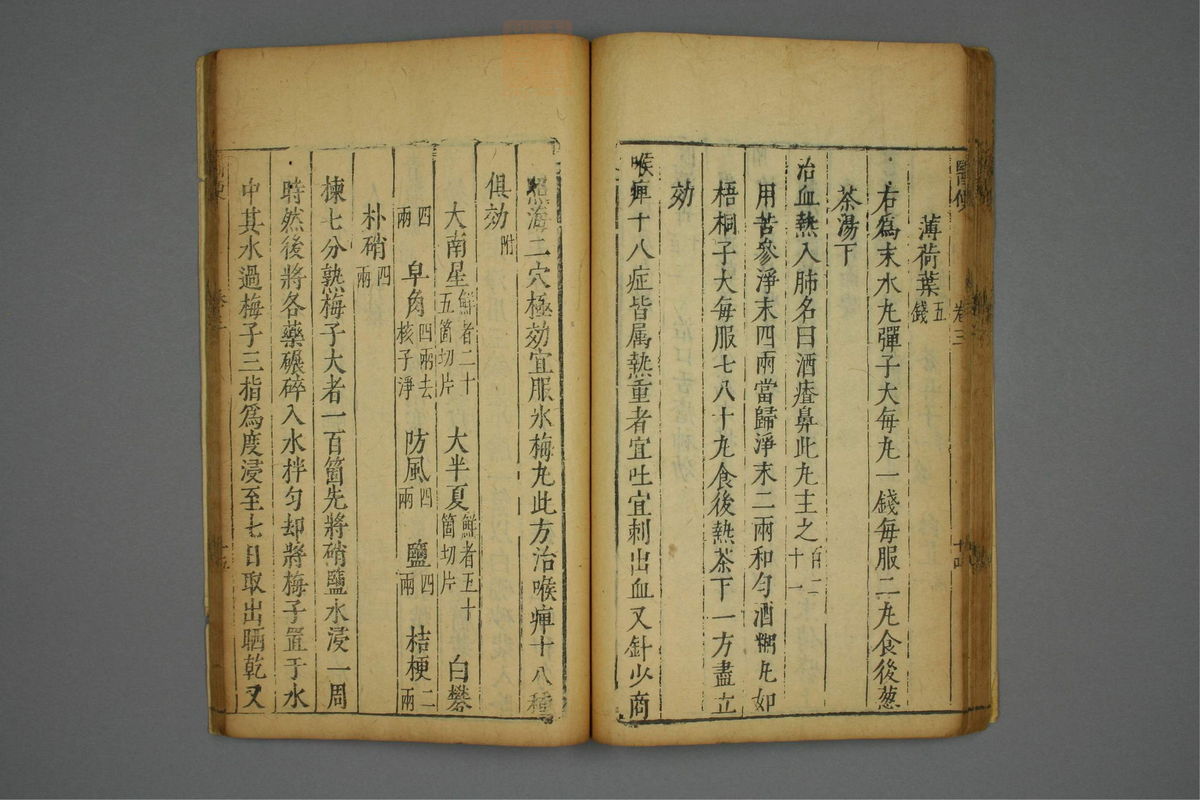 醫便 卷三 十四
薄荷葉五錢
右爲末水丸彈子大每丸一錢每服二丸食後葱
茶湯下
治血熱入肺名曰酒齄鼻此丸主之百二十一
用苦參淨末四兩當歸淨末二兩和勻酒糊丸如
梧桐子大每服七八十丸食後熱茶下一方盡立
効
喉痺十八症皆属熱重者宜吐宜刺出血又針少商
照海二穴極効宜服氷梅丸此方治喉痺十八種
俱効附
大南星鮮者二十五箇切片 大半夏鮮者五十箇切片 白礬
四兩 皁角四兩去核子淨 防風四兩 鹽四兩 桔梗二兩
朴硝四兩
揀七分熟梅子大者一百箇先將硝鹽水浸一周
時然後將各藥碾碎入水拌勻却將梅子置于水
中其水過梅子三指爲度浸至七日取出晒乾又